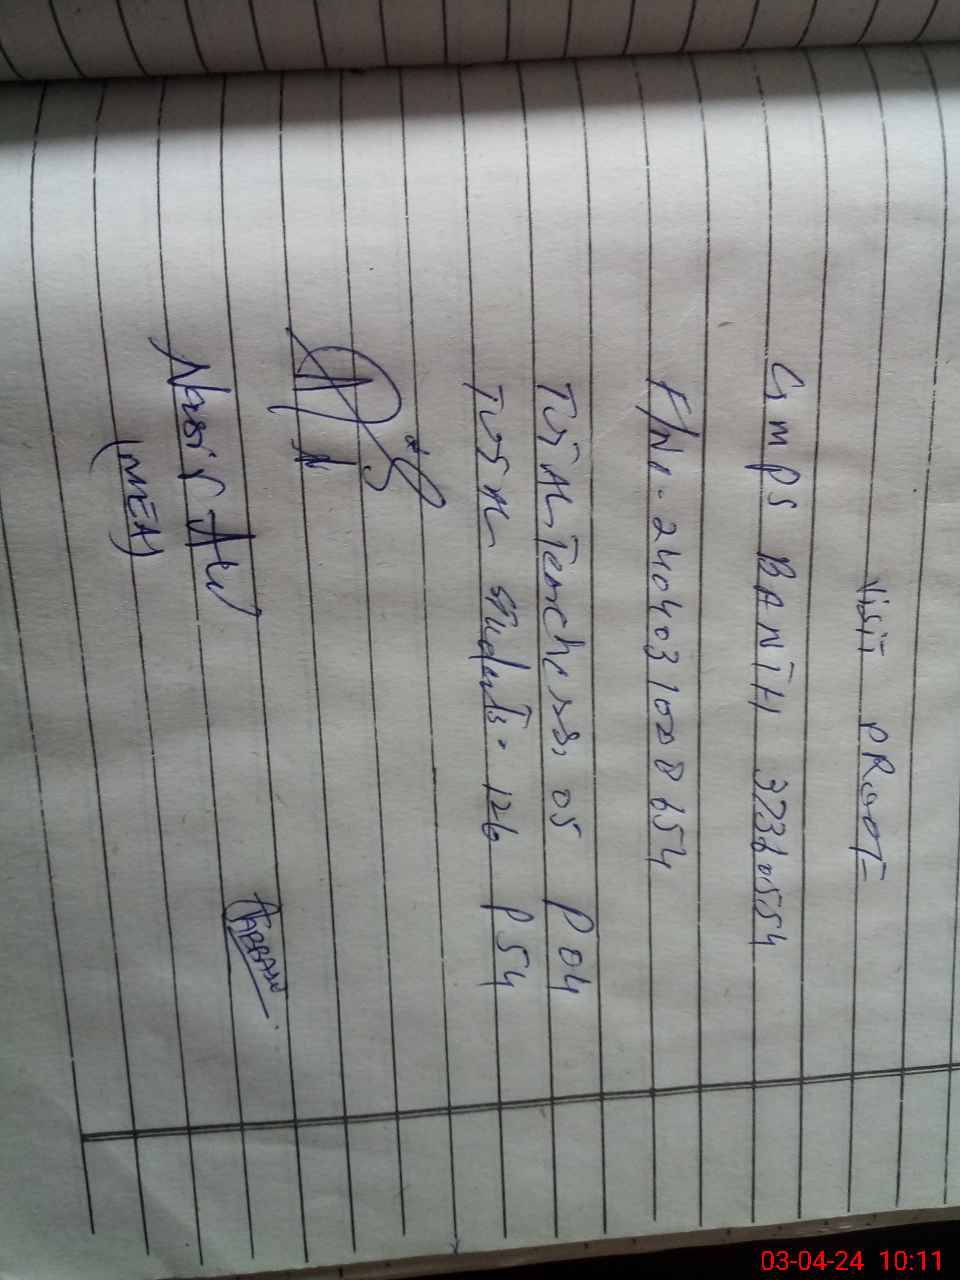 Visit PRooF
GMPS BANTH 32310554
F/No. 2404031008654
Total Teachers. 05 P 04
Total students. 126 P 54
Nasir Ali
(MEA)
ABBASI
03-04-24 10:11